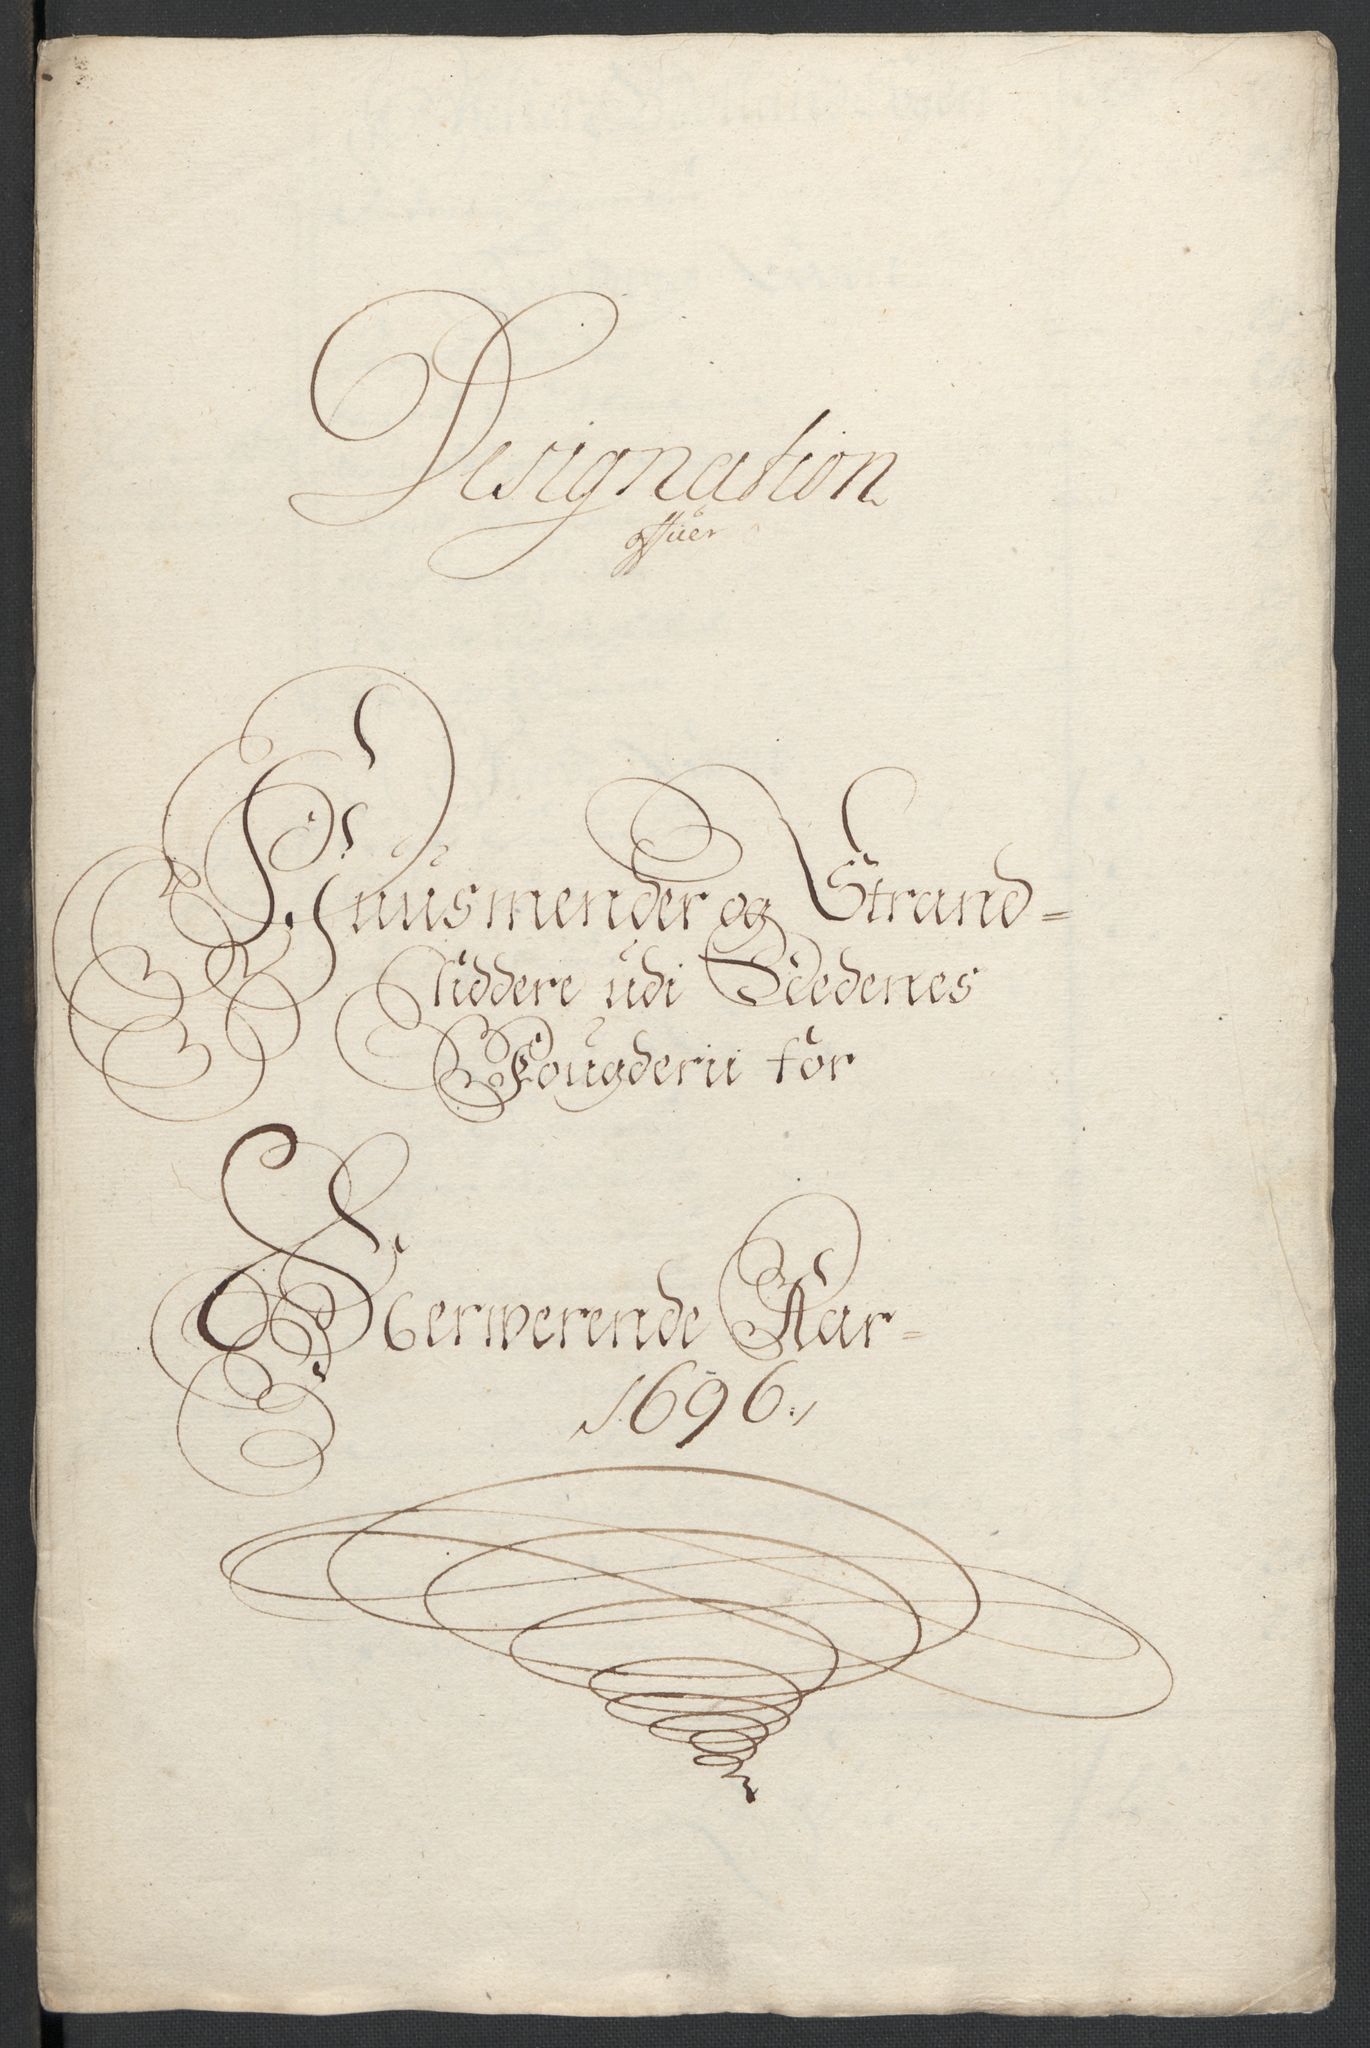 Designation
offuer
Huusmender og Strand=
siddere udi Nedenes
Fougderii for
Nerwerende Aar
1696.